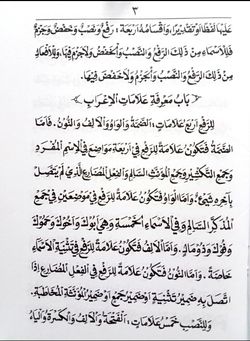 ٣
عَلَيْهَا لَفْظًا أَوْ تَقْدِيرًا، وَأَقْسَامُهُ أَرْبَعَةٌ: رَفْعٌ وَنَصْبٌ وَخَفْضٌ وَجَزْمٌ
فَلِلْأَسْمَاءِ مِنْ ذَلِكَ الرَّفْعُ وَالنَّصْبُ وَالْخَفْضُ وَلَا جَزْمَ فِيهَا، وَلِلْأَفْعَالِ
مِنْ ذَلِكَ الرَّفْعُ وَالنَّصْبُ وَالْجَزْمُ وَلَا خَفْضَ فِيهَا.
﴿بَابُ مَعْرِفَةِ عَلَامَاتِ الْإِعْرَابِ﴾
لِلرَّفْعِ أَرْبَعُ عَلَامَاتٍ، الضَّمَّةُ وَالْوَاوُ وَالْأَلِفُ وَالنُّونُ. فَأَمَّا
الضَّمَّةُ فَتَكُونُ عَلَامَةً لِلرَّفْعِ فِي أَرْبَعَةِ مَوَاضِعَ فِي الْاِسْمِ الْمُفْرَدِ
وَجَمْعِ التَّكْسِيرِ وَجَمْعِ الْمُؤَنَّثِ السَّالِمِ وَالْفِعْلِ الْمُضَارِعِ الَّذِي لَمْ يَتَّصِلْ
بِآخِرِهِ شَيْءٌ. وَأَمَّا الْوَاوُ فَتَكُونُ عَلَامَةً لِلرَّفْعِ فِي مَوْضِعَيْنِ فِي جَمْعِ
الْمُذَكَّرِ السَّالِمِ وَفِي الْأَسْمَاءِ الْخَمْسَةِ وَهِيَ أَبُوكَ وَأَخُوكَ وَحَمُوكَ
وَفُوكَ وَذُو مَالٍ. وَأَمَّا الْأَلِفُ فَتَكُونُ عَلَامَةً لِلرَّفْعِ فِي تَثْنِيَةِ الْأَسْمَاءِ
خَاصَّةً. وَأَمَّا النُّونُ فَتَكُونُ عَلَامَةً لِلرَّفْعِ فِي الْفِعْلِ الْمُضَارِعِ إِذَا
اتَّصَلَ بِهِ ضَمِيرُ تَثْنِيَةٍ أَوْ ضَمِيرُ جَمْعٍ أَوْ ضَمِيرُ الْمُؤَنَّثَةِ الْمُخَاطَبَةِ.
وَلِلنَّصْبِ خَمْسُ عَلَامَاتٍ، الْفَتْحَةُ وَالْأَلِفُ وَالْكَسْرَةُ وَالْيَاءُ